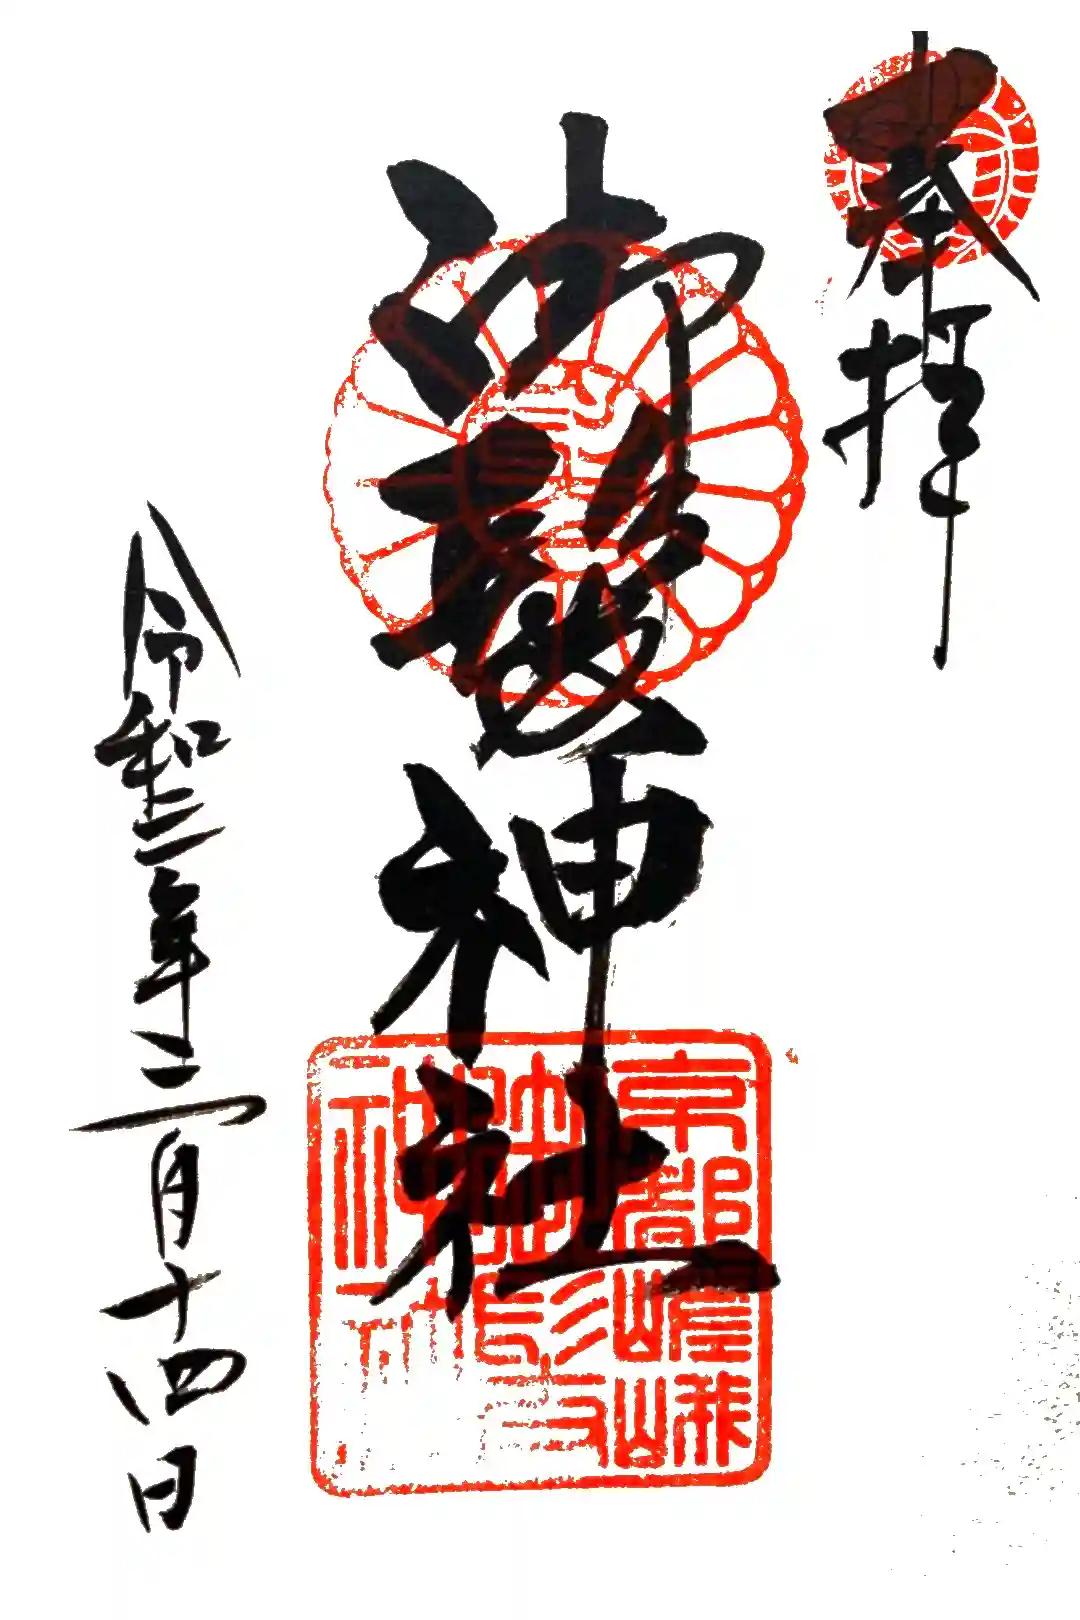 奉拝
御髪神社
令和三年三月十四日
京都嵯峨
御髪
神社